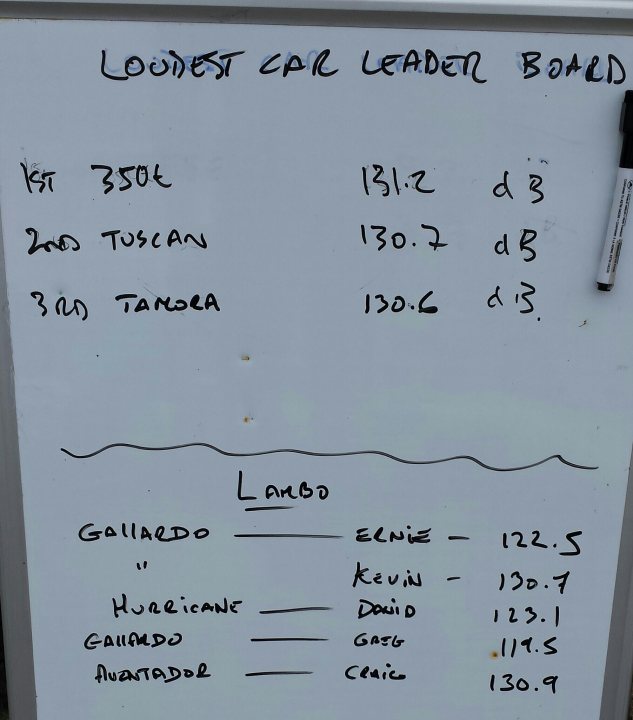 LOUDEST CAR LEADER BOARD
1ST 350C 131.2 dB
2ND TUSCAN 130.7 dB
3RD TAMORA 130.6 dB.
LAMBO
GALLARDO — ERNIE — 122.5
" KEVIN — 130.7
HURRICANE — DAVID 123.1
GALLARDO — GREG 119.5
AVENTADOR — CRAIG 130.9